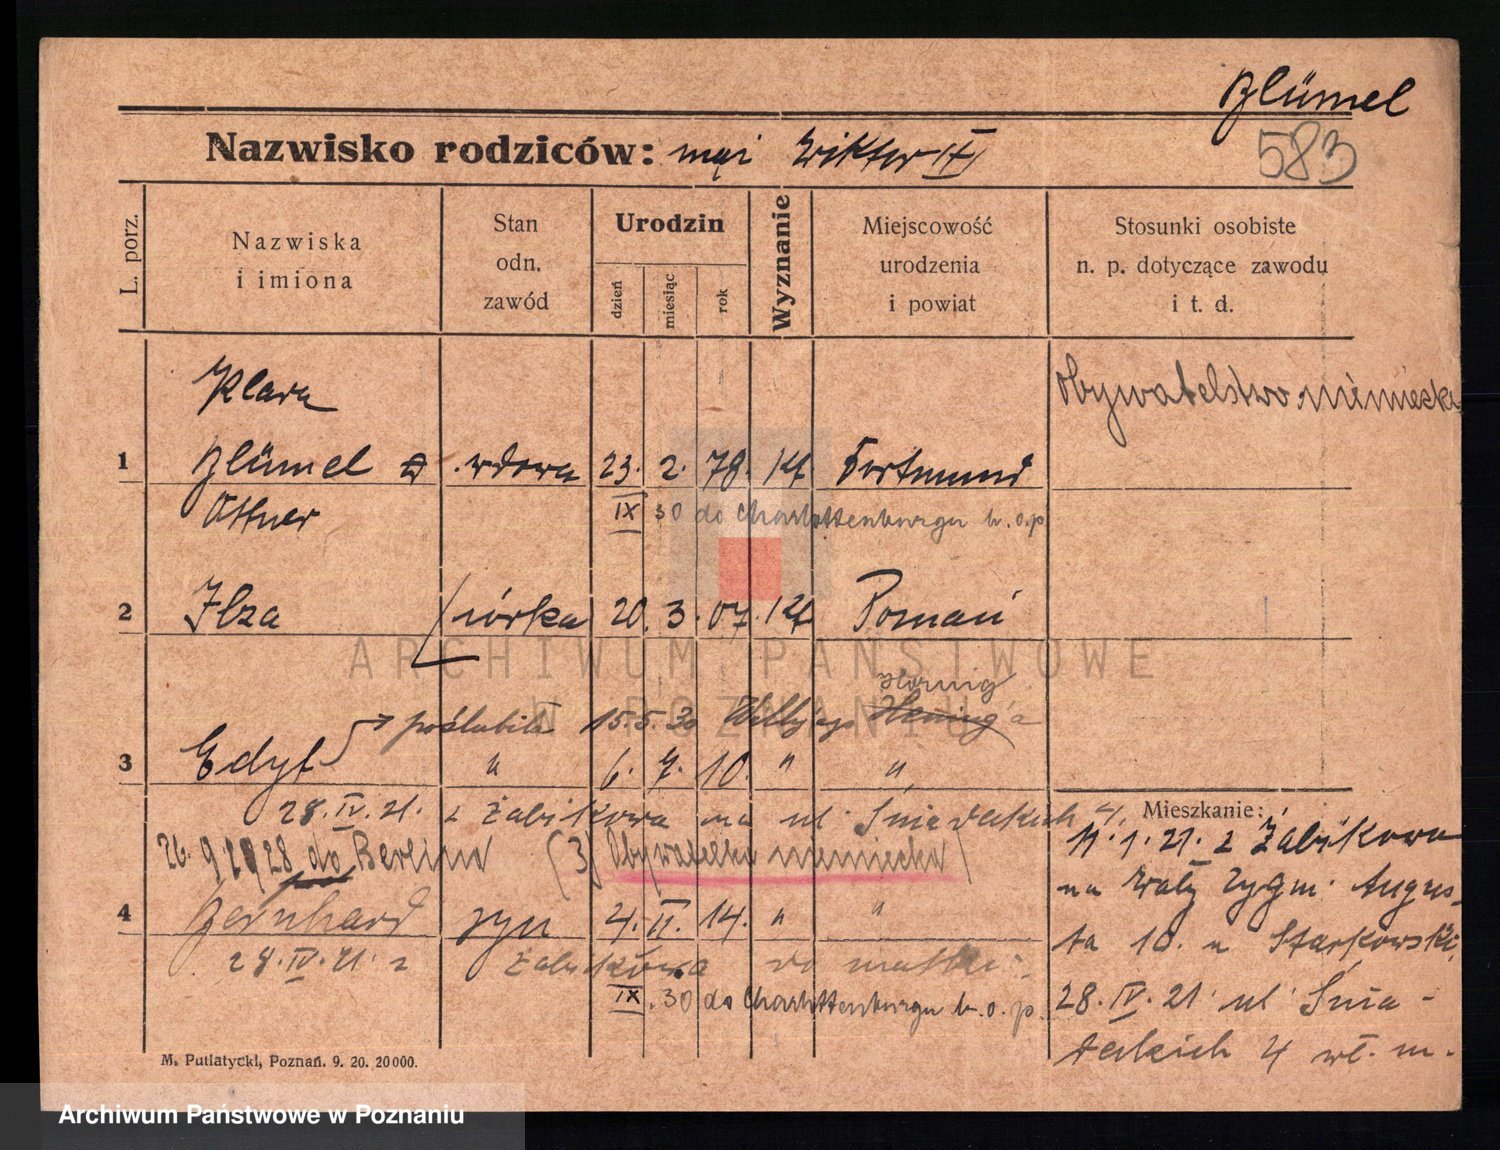 Blümel
583
Nazwisko rodziców: mąż Wiktor (†)
L. porz.
Nazwiska i imiona
Stan odn. zawód
Urodzin
dzień
miesiąc
rok
Wyznanie
Miejscowość urodzenia i powiat
Stosunki osobiste n. p. dotyczące zawodu i t. d.
Klara
Obywatelstwo niemieckie
1 Blümel z wdowa 23. 2. 78. kt. Dortmund
Attner IX 30 do Charlottenburga b. o. p.
2 Ilza córka 20. 3. 07. kt. Poznań
Hornig
poślubiła 15.5.30 Willyego Hening'a
3 Edyt " 6. 7. 10. " "
28. IV. 21. z Żabikowa na ul Śniadeckich 4.
26. 9 28 do Berlina (3) Obywatelka niemiecka
4 Bernhard syn 4. II. 14. " "
28. IV. 21 z Żabikowa do matki.
IX. 30 do Charlottenburga b. o. p.
Mieszkanie:
11. 1. 21. z Żabikowa
na Wały Zygm. Augus-
ta 10. u Starkowski,
28. IV. 21 ul Śnia-
deckich 4 wł. m.
M. Putiatycki, Poznań. 9. 20. 20000.
ARCHIWUM PAŃSTWOWE
W POZNANIU
Archiwum Państwowe w Poznaniu